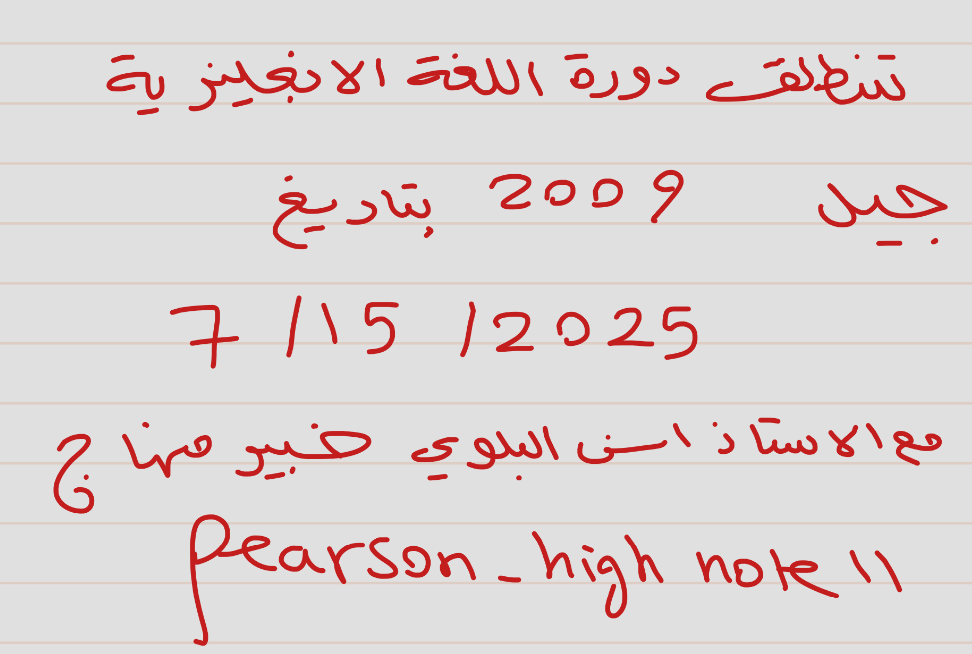 تنطلق دورة اللغة الانجليزية
جيل 2009 بتاريخ
7/15/2025
مع الاستاذ انس البلوي خبير منهاج
pearson_high note 11